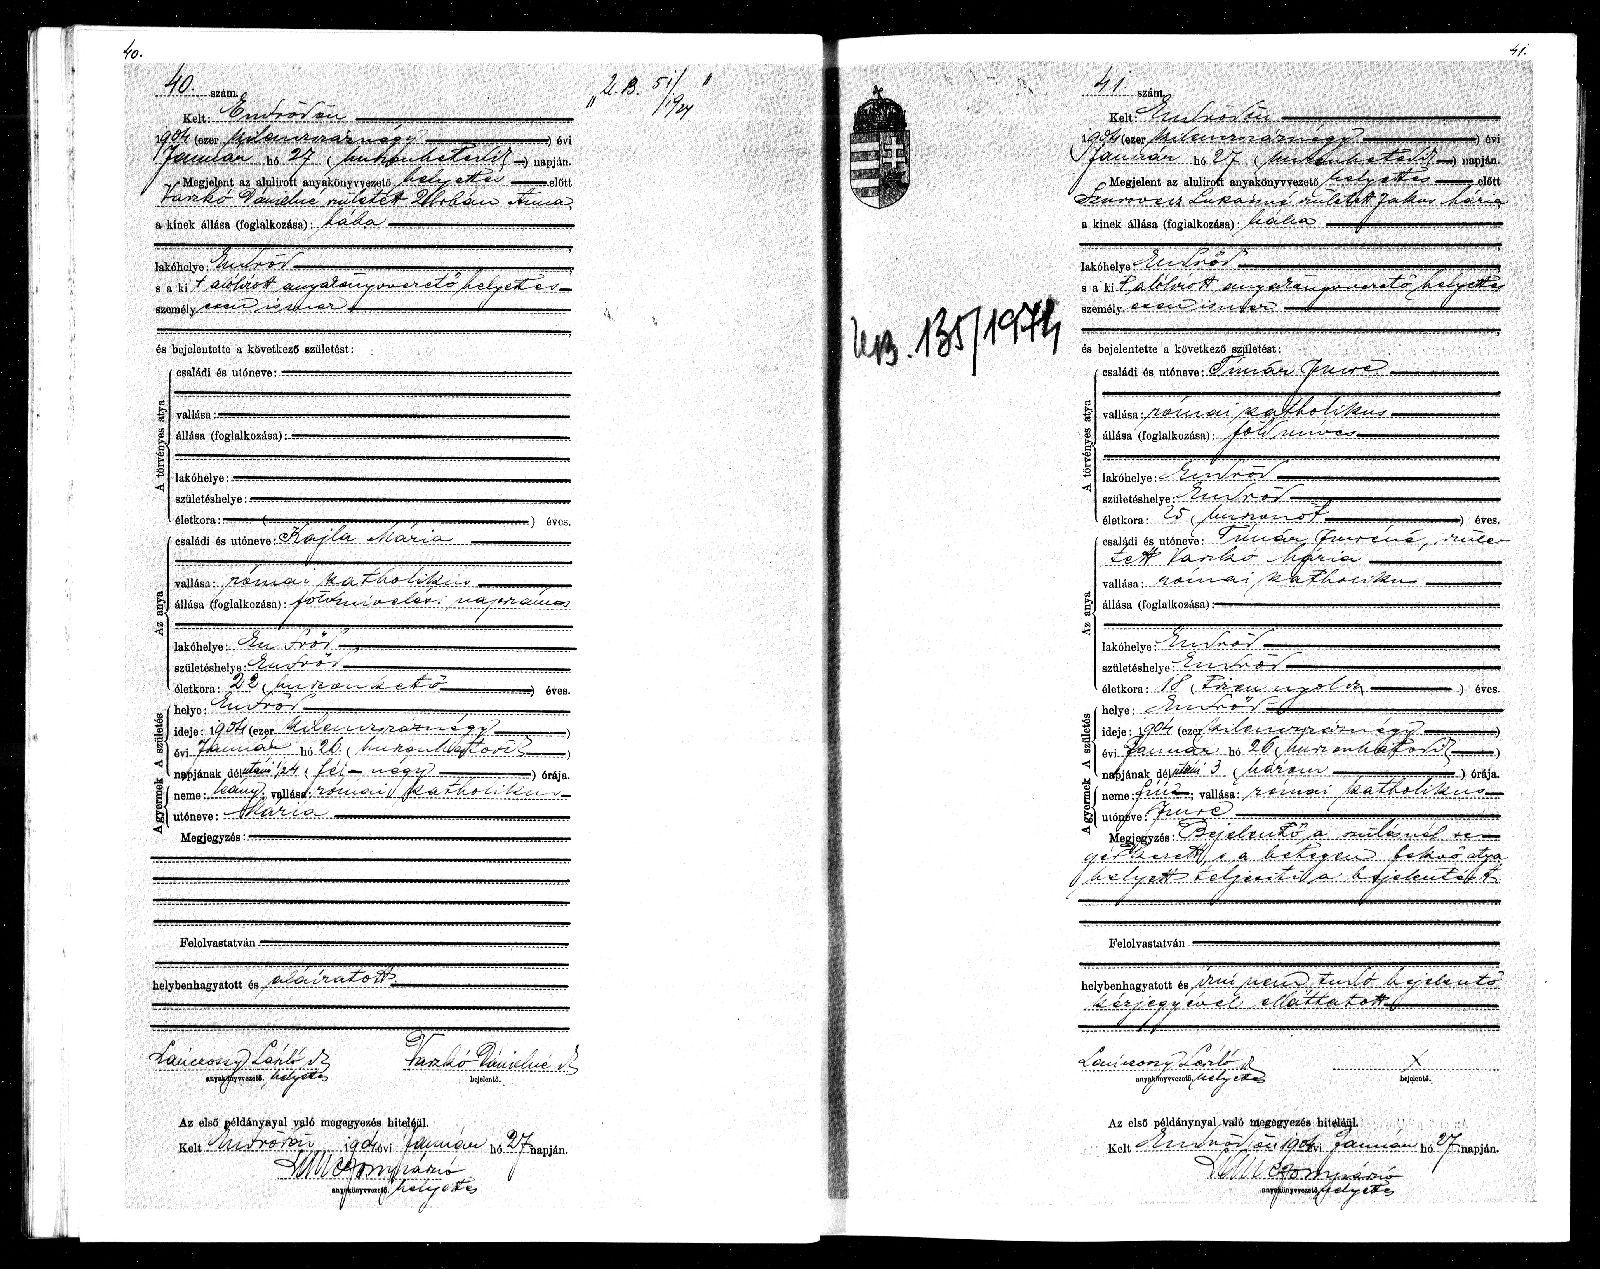 40.
40. szám.
Kelt: Endrődön
1904 (ezer kilenczszáznégy) évi
Január hó 27 (huszonhetedik) napján.
Megjelent az alulirott anyakönyvvezető helyettes előtt
Vaszkó Dánielné született Urbán Anna,
a kinek állása (foglalkozása): bába
lakóhelye: Endrőd
s a kit alólirott anyakönyvvezető helyettes
személyesen ismer
és bejelentette a következő születést:
A törvényes atya
családi és utóneve:
vallása:
állása (foglalkozása):
lakóhelye:
születéshelye:
életkora: ( ) éves.
Az anya
családi és utóneve: Kajla Mária
vallása: római katholikus
állása (foglalkozása): földmivelési napszámos
lakóhelye: Endrőd
születéshelye: Endrőd
életkora: 22 (huszonkettő) éves.
A gyermek A születés
helye: Endrőd
ideje: 1904 (ezer kilenczszáznégy)
évi Január hó 26. (huszonhatodik)
napjának délutáni 1/24 (fél-négy) órája.
neme: leány; vallása: római katholikus
utóneve: Mária
Megjegyzés:
Felolvastatván
helybenhagyatott és aláiratott
László
anyakönyvvezető. helyettes
Vaszkó Dánielné
bejelentő.
Az első példánynyal való megegyezés hiteléül.
Kelt Endrődön 1904 évi Január hó 27 napján.
anyakönyvvezető. helyettes
51/1924
135/1974
41.
41 szám.
Kelt: Endrődön
1904 (ezer kilenczszáznégy) évi
Január hó 27 (huszonhetedik) napján.
Megjelent az alulirott anyakönyvvezető helyettes előtt
Lukácsné született Jakus Mária
a kinek állása (foglalkozása): bába
lakóhelye: Endrőd
s a kit alólirott anyakönyvvezető helyettes
személyesen ismer
és bejelentette a következő születést:
A törvényes atya
családi és utóneve: Timár Imre
vallása: római katholikus
állása (foglalkozása): földmíves
lakóhelye: Endrőd
születéshelye: Endrőd
életkora: 25 (huszonöt) éves.
Az anya
családi és utóneve: Timár Imréné, szüle-
tett Vaszkó Mária
vallása: római katholikus
állása (foglalkozása):
lakóhelye: Endrőd
születéshelye: Endrőd
életkora: 18 (tizennyolcz) éves.
A gyermek A születés
helye: Endrőd
ideje: 1904 (ezer kilenczszáznégy)
évi Január hó 26 (huszonhatodik)
napjának délutáni 3 (három) órája.
neme: fiú; vallása: római katholikus
utóneve: Imre
Megjegyzés: Bejelentő a szülésnél se-
gédkezett, s a betegen fekvő atya
helyett teljesíti a bejelentést
Felolvastatván
helybenhagyatott és irni nem tudó bejelentő
kézjegyével elláttatott
László
anyakönyvvezető. helyettes
X
bejelentő.
Az első példánynyal való megegyezés hiteléül.
Kelt Endrődön 1904 évi Január hó 27 napján.
anyakönyvvezető. helyettes